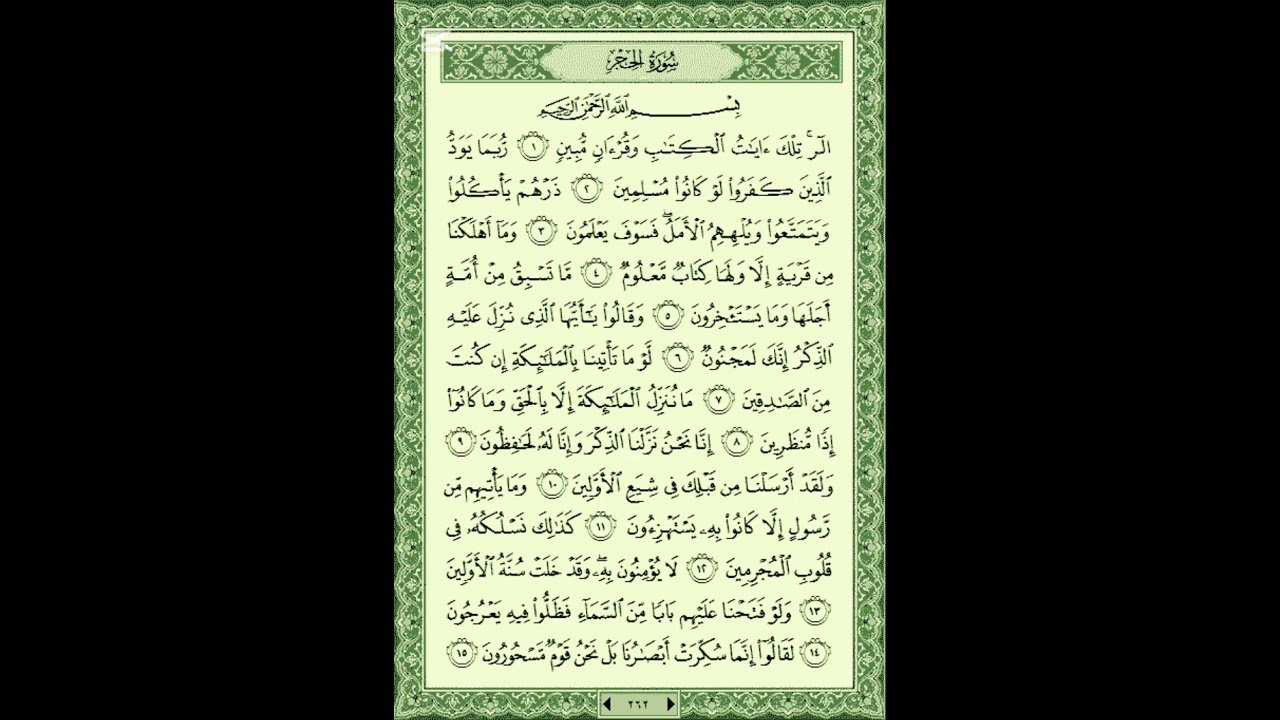 سُورَةُ الحِجْرِ
بِسْمِ اللَّهِ الرَّحْمَٰنِ الرَّحِيمِ
الٓرۚ تِلْكَ ءَايَٰتُ ٱلْكِتَٰبِ وَقُرْءَانٍ مُّبِينٍ ١ رُّبَمَا يَوَدُّ
ٱلَّذِينَ كَفَرُوا۟ لَوْ كَانُوا۟ مُسْلِمِينَ ٢ ذَرْهُمْ يَأْكُلُوا۟
وَيَتَمَتَّعُوا۟ وَيُلْهِهِمُ ٱلْأَمَلُۖ فَسَوْفَ يَعْلَمُونَ ٣ وَمَآ أَهْلَكْنَا
مِن قَرْيَةٍ إِلَّا وَلَهَا كِتَابٌ مَّعْلُومٌ ٤ مَّا تَسْبِقُ مِنْ أُمَّةٍ
أَجَلَهَا وَمَا يَسْتَـْٔخِرُونَ ٥ وَقَالُوا۟ يَٰٓأَيُّهَا ٱلَّذِى نُزِّلَ عَلَيْهِ
ٱلذِّكْرُ إِنَّكَ لَمَجْنُونٌ ٦ لَّوْ مَا تَأْتِينَا بِٱلْمَلَٰٓئِكَةِ إِن كُنتَ
مِنَ ٱلصَّٰدِقِينَ ٧ مَا نُنَزِّلُ ٱلْمَلَٰٓئِكَةَ إِلَّا بِٱلْحَقِّ وَمَا كَانُوٓا۟
إِذًا مُّنظَرِينَ ٨ إِنَّا نَحْنُ نَزَّلْنَا ٱلذِّكْرَ وَإِنَّا لَهُۥ لَحَٰفِظُونَ ٩
وَلَقَدْ أَرْسَلْنَا مِن قَبْلِكَ فِى شِيَعِ ٱلْأَوَّلِينَ ١٠ وَمَا يَأْتِيهِم مِّن
رَّسُولٍ إِلَّا كَانُوا۟ بِهِۦ يَسْتَهْزِءُونَ ١١ كَذَٰلِكَ نَسْلُكُهُۥ فِى
قُلُوبِ ٱلْمُجْرِمِينَ ١٢ لَا يُؤْمِنُونَ بِهِۦۖ وَقَدْ خَلَتْ سُنَّةُ ٱلْأَوَّلِينَ
١٣ وَلَوْ فَتَحْنَا عَلَيْهِم بَابًا مِّنَ ٱلسَّمَآءِ فَظَلُّوا۟ فِيهِ يَعْرُجُونَ
١٤ لَقَالُوٓا۟ إِنَّمَا سُكِّرَتْ أَبْصَٰرُنَا بَلْ نَحْنُ قَوْمٌ مَّسْحُورُونَ ١٥
٢٦٢